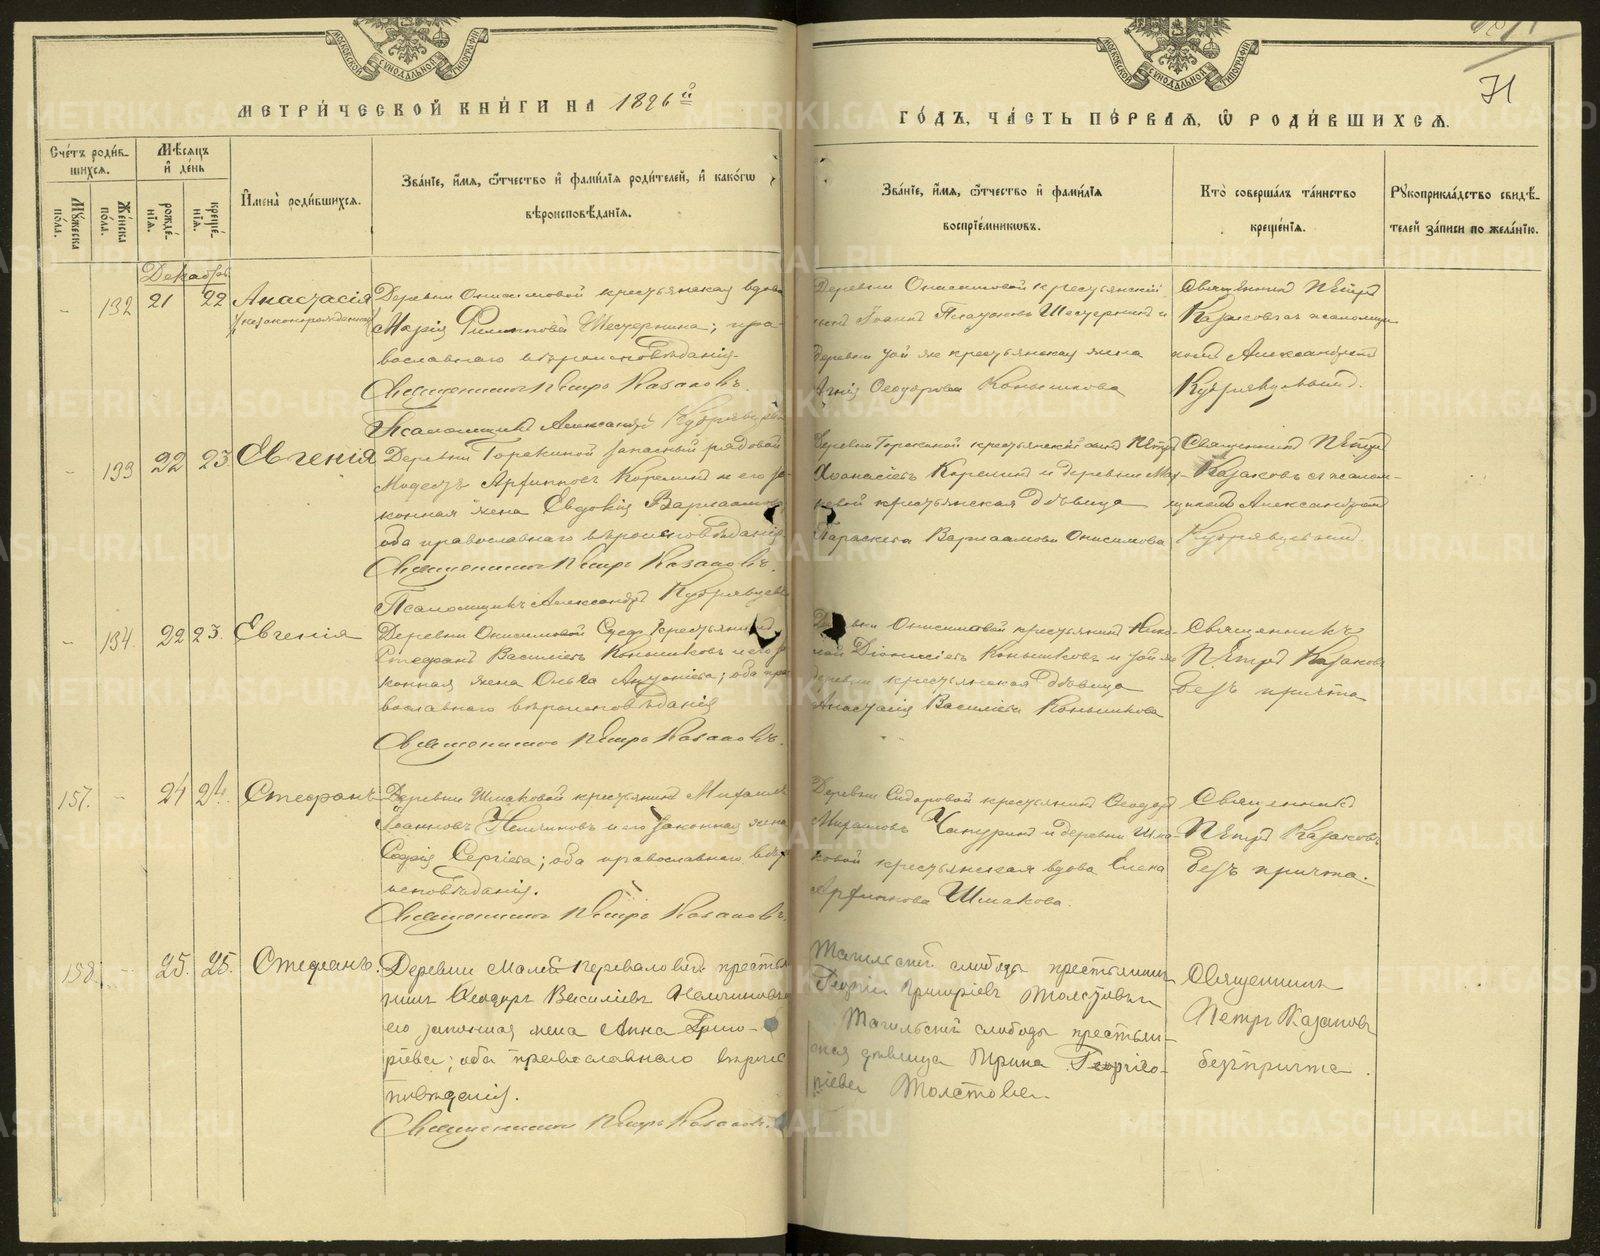 МЕТРИЧЕСКОЙ КНИГИ НА 1896 й
ГОДЪ, ЧАСТЬ ПЕРВАЯ, Ѿ РОДИВШИХСЯ.
71
Счетъ родив-
шихся.
Мужеска пола.
Женска пола.
Мѣсяцъ и день
рожде-
нія.
креще-
нія.
Имена родившихся.
Званіе, имя, ѿтчество и фамилія родителей, и какогѡ
вѣроисповѣданія.
Званіе, имя, ѿтчество и фамилія
воспріемникѡвъ.
Кто совершалъ таинство
крещенія.
Рукоприкладство свидѣ-
телей записи по желанію.
Декабрь
132 21 22 Анастасія
(незаконнорожденная)
Деревни Онисимовой крестьянская вдова
Марія Филиппова Шестернина; пра-
вославнаго вѣроисповѣданія.
Священникъ Петръ Казаковъ.
Псаломщикъ Александръ Кудрявцевъ
Деревни Онисимовой крестьянскій
сынъ Іоаннъ Платоновъ Шестернинъ и
деревни той же крестьянская жена
Агнія Ѳеодорова Коньшикова
Священникъ Петръ
Казаковъ съ псаломщи-
комъ Александромъ
Кудрявцевымъ.
133 22 23 Евгенія
Деревни запасный рядовой
Модестъ Арфинновъ Корелинъ и его за-
конная жена Евдокія Варлаамова
оба православнаго вѣроисповѣданія.
Священникъ Петръ Казаковъ.
Псаломщикъ Александръ Кудрявцевъ
крестьянскій сынъ Петръ
Аѳанасіевъ Корелинъ и деревни
крестьянская дѣвица
Параскева Варлаамова Онисимова
Священникъ Петръ
Казаковъ съ псалом-
щикомъ Александромъ
Кудрявцевымъ.
134. 22 23. Евгенія
Деревни Онисимовой крестьянинъ
Стефанъ Василіевъ Коньшиковъ и его за-
конная жена Ольга Антоніева; оба пра-
вославнаго вѣроисповѣданія
Священникъ Петръ Казаковъ.
Деревни Онисимовой крестьянинъ Нико-
лай Діонисіевъ Коньшиковъ и той же
деревни крестьянская дѣвица
Анастасія Василіева Коньшикова
Священникъ
Петръ Казаковъ
безъ причта
157. 24 24. Стефанъ
Деревни Шмаковой крестьянинъ Михаилъ
Іоанновъ Немчиновъ и его законная жена
Софія Сергіева; оба православнаго вѣро-
исповѣданія.
Священникъ Петръ Казаковъ.
Деревни Сидоровой крестьянинъ Ѳеодоръ
Михаиловъ Чапуринъ и деревни Шма-
ковой крестьянская вдова Елена
Шмакова.
Священникъ
Петръ Казаковъ
безъ причта.
158. 25. 25. Стефанъ.
Деревни Малой Переваловой крестья-
нинъ Ѳеодоръ Василіевъ Немчиновъ и
его законная жена Анна Григо-
ріева; оба православнаго вѣроис-
повѣданія.
Священникъ Петръ Казаковъ.
Тагильской слободы крестьянинъ
Георгій Григоріевъ Толстовъ и
Тагильской слободы крестьян-
ская дѣвица Ирина Георгіева
Толстова.
Священникъ
Петръ Казаковъ
безъ причта.
METRIKI.GASO-URAL.RU